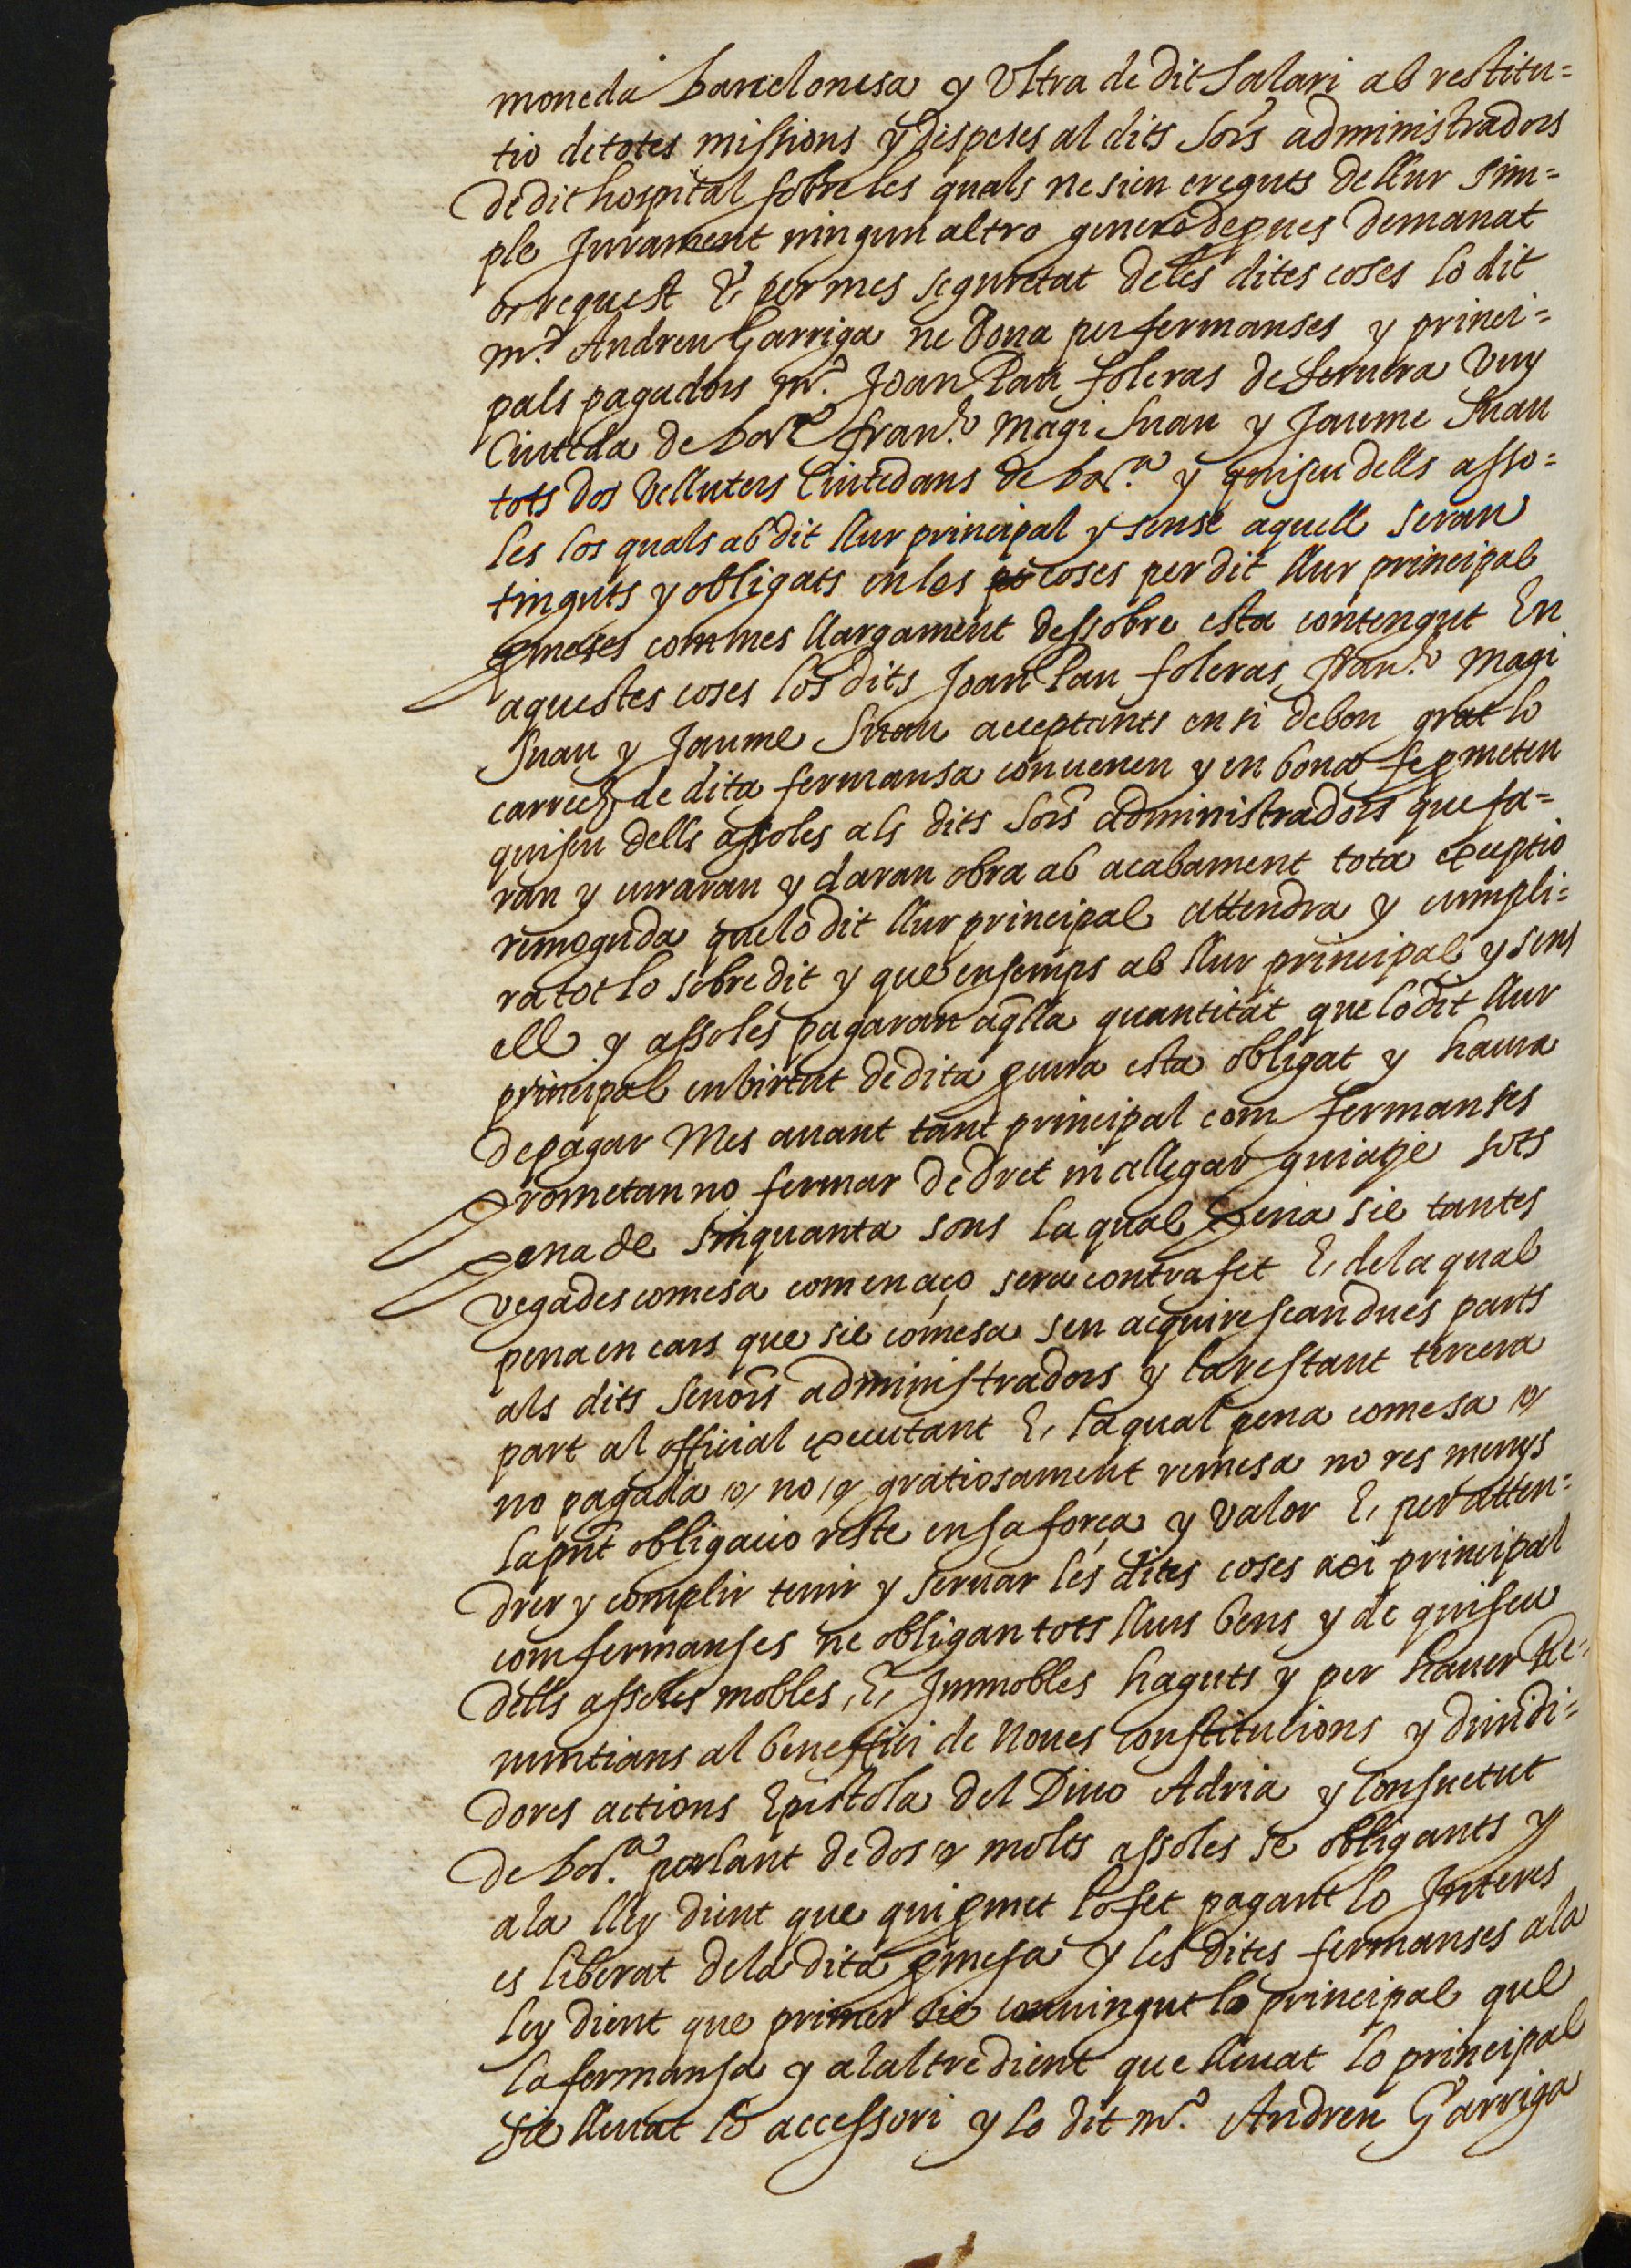 moneda barcelonesa y Ultra de dit salari ab restitu=
tio de totes missions y despeses al dits Sors administradors
de dit hospital sobre les quals ne sien creguts de llur sim=
ple Jurament ningun altro genero de pues demanat
o request E, per mes seguretat de les dites coses lo dit
mº. Andreu Garriga ne dona per fermanses y princi=
pals pagadors mº. Joan Pau soleras de Ceruera vuy
Ciuteda de barª franº. Magi Suau y Jaume Suau
tots dos velluters Ciutedans de barª. y quiseu dells asso=
les los quals ab dit llur principal y sense aquell seran
tinguts y obligats en les coses per dit llur principal
pmeses com mes llargament dessobre esta contengut En
aquestes coses los dits Joan Pau soleras, franº. Magi
Suau y Jaume Suau acceptants en si de bon grat lo
carrech de dita fermansa conuenen y en bona fe pmeten
quiseu dells assoles als dits Sors administradors que fa=
ran y curaran y daran obra ab acabament tota exceptio
remoguda que lo dit llur principal attendra y cumpli=
ra tot lo sobredit y que ensemps ab llur principal y sens
ell y assoles pagaran aqlla quantitat que lo dit llur
principal en birtut de dita pura esta obligat y haura
de pagar Mes auant tant principal com fermanses
prometan no fermar de dret ni allegar guiatje sots
pena de sinquanta sous la qual pena sie tantes
vegades comesa com en aço sera contrafet E, de la qual
pena en cars que sie comesa sen acquirescan dues parts
als dits Senors administradors y la restant tercera
part al official executant E, la qual pena comesa o,
no pagada o, no, y gratiosament remesa no res menys
la pnt obligacio reste en sa força y valor E, per atten=
drer y complir tenir y seruar les dites coses axi principal
com fermanses ne obligan tots llurs bens y de quiseu
dells assoles mobles, E, Jmmobles haguts y per hauer Re=
nuntians al beneffici de noues constitucions y diuidi=
dores actions Epistola del Diuo Adria y Consuetut
de barª. parlant de dos y molts assoles se obligants y
a la lley dient que qui pmet lo fet pagant lo Jnteres
es liberat de la dita pmesa y les dites fermanses a la
ley dient que primer sie conuingut lo principal que
la fermansa y a laltre dient que lleuat lo principal
sie lleuat lo accessori y lo dit mº. Andreu Garriga